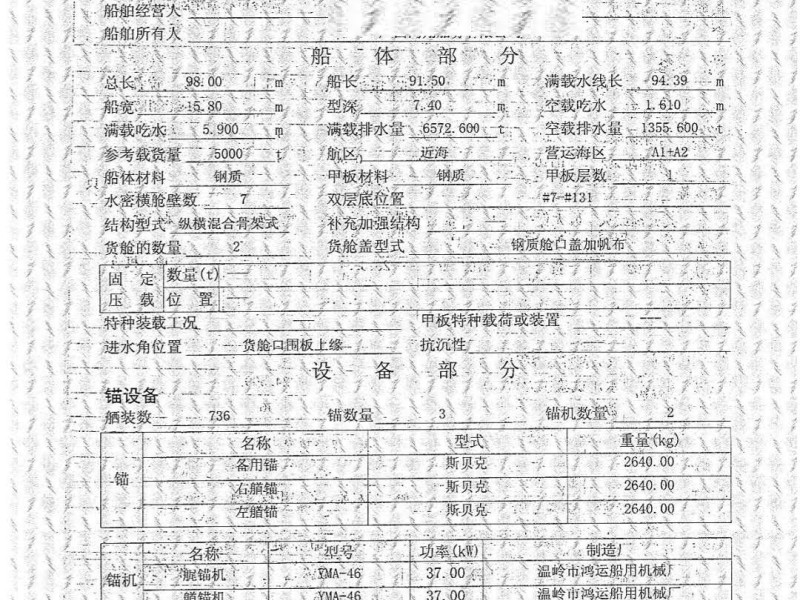 船舶经营人
船舶所有人
船 体 部 分
总长 98.00 m 船长 91.50 m 满载水线长 94.39 m
船宽 15.80 m 型深 7.40 m 空载吃水 1.610 m
满载吃水 5.900 m 满载排水量 6572.600 t 空载排水量 1355.600 t
参考载货量 5000 t 航区 近海 营运海区 A1+A2
船体材料 钢质 甲板材料 钢质 甲板层数 1
水密横舱壁数 7 双层底位置 #7-#131
结构型式 纵横混合骨架式 补充加强结构 —
货舱的数量 2 货舱盖型式 钢质舱口盖加帆布
固定 数量(t) —
压载 位置 —
特种装载工况 — 甲板特种载荷或装置 —
进水角位置 货舱口围板上缘 抗沉性
设 备 部 分
锚设备
舾装数 736 锚数量 3 锚机数量 2
名称 型式 重量(kg)
备用锚 斯贝克 2640.00
锚 右艏锚 斯贝克 2640.00
左艏锚 斯贝克 2640.00
名称 型号 功率(kW) 制造厂
锚机 艉锚机 YMA-46 37.00 温岭市鸿运船用机械厂
艏锚机 YMA-46 37.00 温岭市鸿运船用机械厂